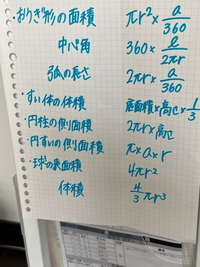 ・おうぎ形の面積 πr²×a/360
中心角 360×ℓ/2πr
弧の長さ 2πr×a/360
・すい体の体積 底面積×高さ×1/3
・円柱の側面積 2πr×高さ
・円すいの側面積 π×a×r
・球の表面積 4πr²
体積 4/3πr³